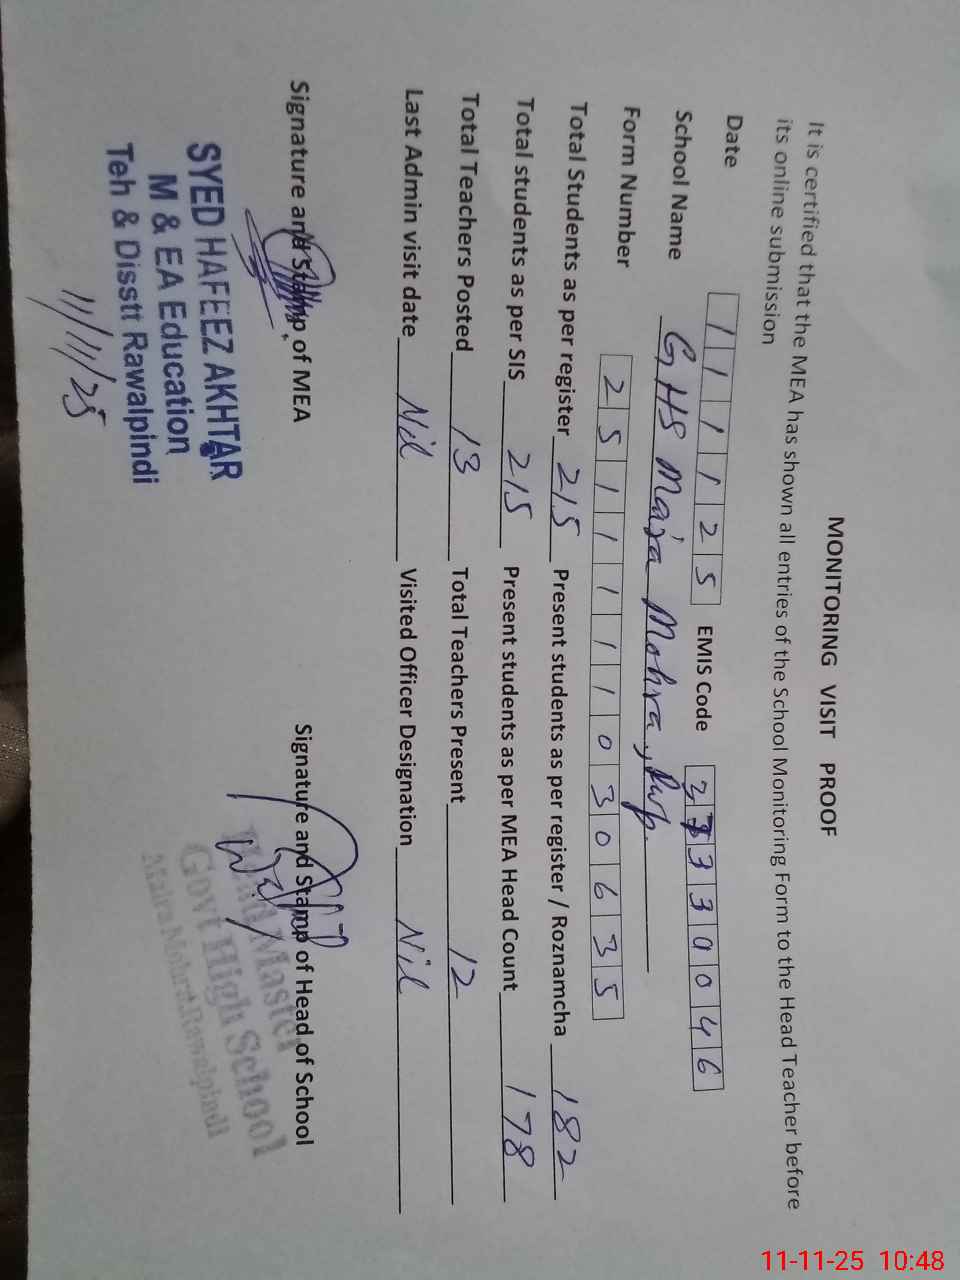 MONITORING VISIT PROOF
It is certified that the MEA has shown all entries of the School Monitoring Form to the Head Teacher before
its online submission
Date 111125 EMIS Code 37330046
School Name GHS Maira Mohra, Rwp.
Form Number 2511111030635
Total Students as per register 215 Present students as per register / Roznamcha 182
Total students as per SIS 215 Present students as per MEA Head Count 178
Total Teachers Posted 13 Total Teachers Present 12
Last Admin visit date Nil Visited Officer Designation Nil
Signature and Stamp of MEA Signature and Stamp of Head of School
SYED HAFEEZ AKHTAR
M & EA Education
Teh & Disstt Rawalpindi
11/11/25
Head Master
Govt High School
Maira Mohra Rawalpindi
11-11-25 10:48